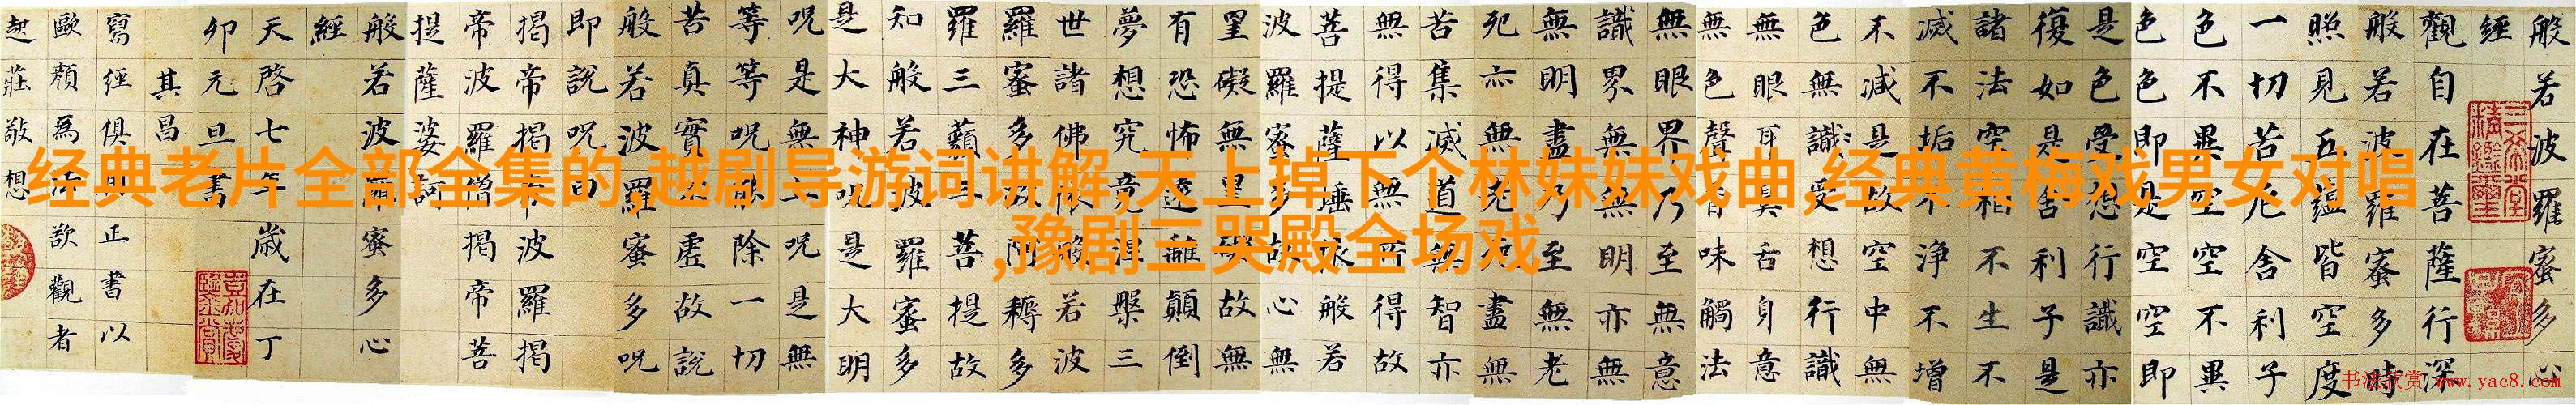 般若波羅蜜多心
經
觀自在菩薩行深
般若波羅蜜多時
照見五蘊皆空度
一切苦厄舍利子
色不異空空不異
色色即是空空即
是色受想行識亦
復如是舍利子是
諸法空相不生不
滅不垢不淨不增
不減是故空中無
色無識受想行識
無眼耳鼻舌身意
無色聲香味觸法
無眼界乃至無意
識界無無明亦無
無明盡乃至無老
死亦無老死盡無
苦集滅道無智亦
無得以無所得故
菩提薩埵依般若
波羅蜜多故心無
罣礙無罣礙故無
有恐怖遠離顛倒
夢想究竟涅槃三
世諸佛依般若波
羅蜜多故阿耨多
羅三藐三菩提故
知般若波羅蜜多
是大神呪是大明
呪是無上呪是無
等等呪能除一切
苦真實不虛故說
般若波羅蜜多呪
即說呪曰
揭帝揭帝波羅揭
帝波羅僧揭帝菩
提薩婆訶
般若波羅蜜多心
經
天啓七年歲在丁
卯元旦書
其昌
寫經俱用正書以
歐顏爲法欲觀者
起莊敬想
经典老片全部全集的,越剧导游词讲解,天上掉下个林妹妹戏曲,经典黄梅戏男女对唱
,豫剧三哭殿全场戏
书法欣赏 www.yac8.com